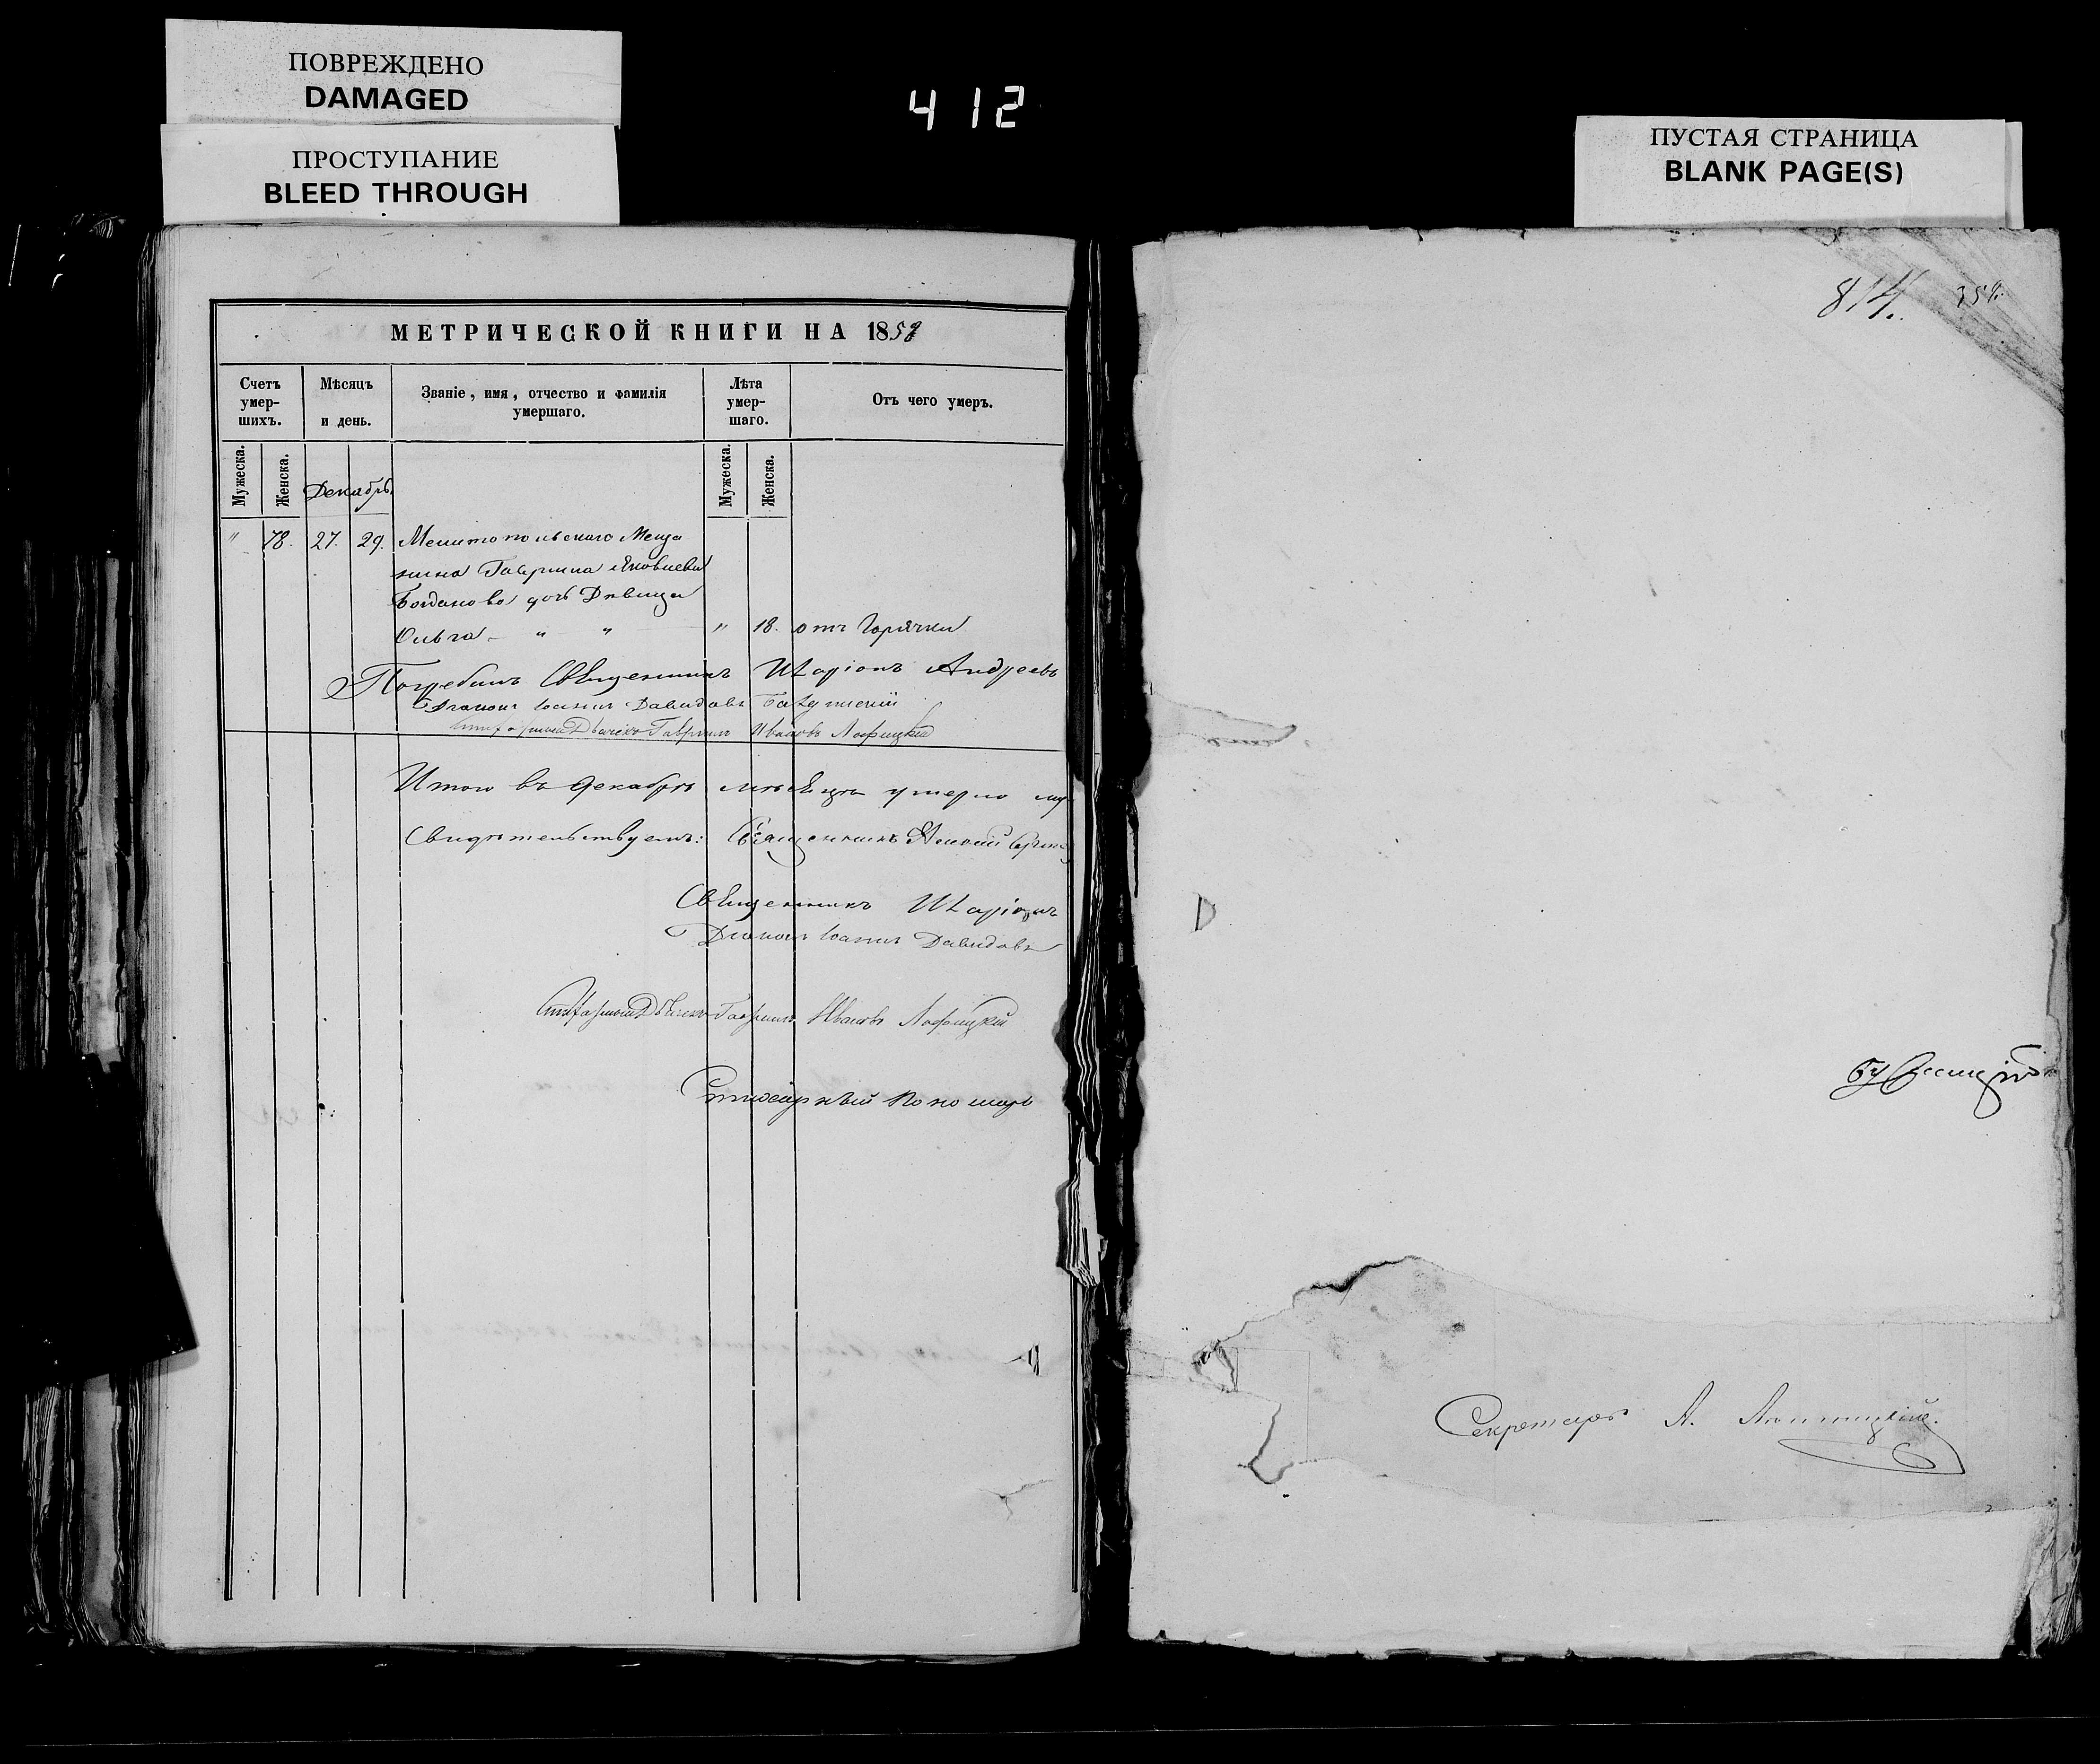 ПОВРЕЖДЕНО
DAMAGED
ПРОСТУПАНИЕ
BLEED THROUGH
412
ПУСТАЯ СТРАНИЦА
BLANK PAGE(S)
МЕТРИЧЕСКОЙ КНИГИ НА 1858
Счетъ умер-шихъ.
Мѣсяцъ и день.
Званіе, имя, отчество и фамилія умершаго.
Лѣта умер-шаго.
Отъ чего умеръ.
Мужеска.
Женска.
Декабрь
Мужеска.
Женска.
" 78. 27. 29. Мелитопольскаго Меща
нина Гавріила Яковлева
Богданова дочь Дѣвица
Ольга " " " 18. отъ Горячки
Погребалъ Священникъ Иларіонъ Андреевъ
Діаконъ Іоаннъ Давидовъ
Дьячекъ Гавріилъ Ивановъ Лофицкій
Итого въ декабрѣ мѣсяцѣ умерло му
Свидѣтельствуемъ: Священникъ Алексій
Священникъ Иларіонъ
Діаконъ Іоаннъ Давидовъ
Дьячекъ Гавріилъ Ивановъ Лофицкій
Пономарь
814.
354.
Секретарь А.